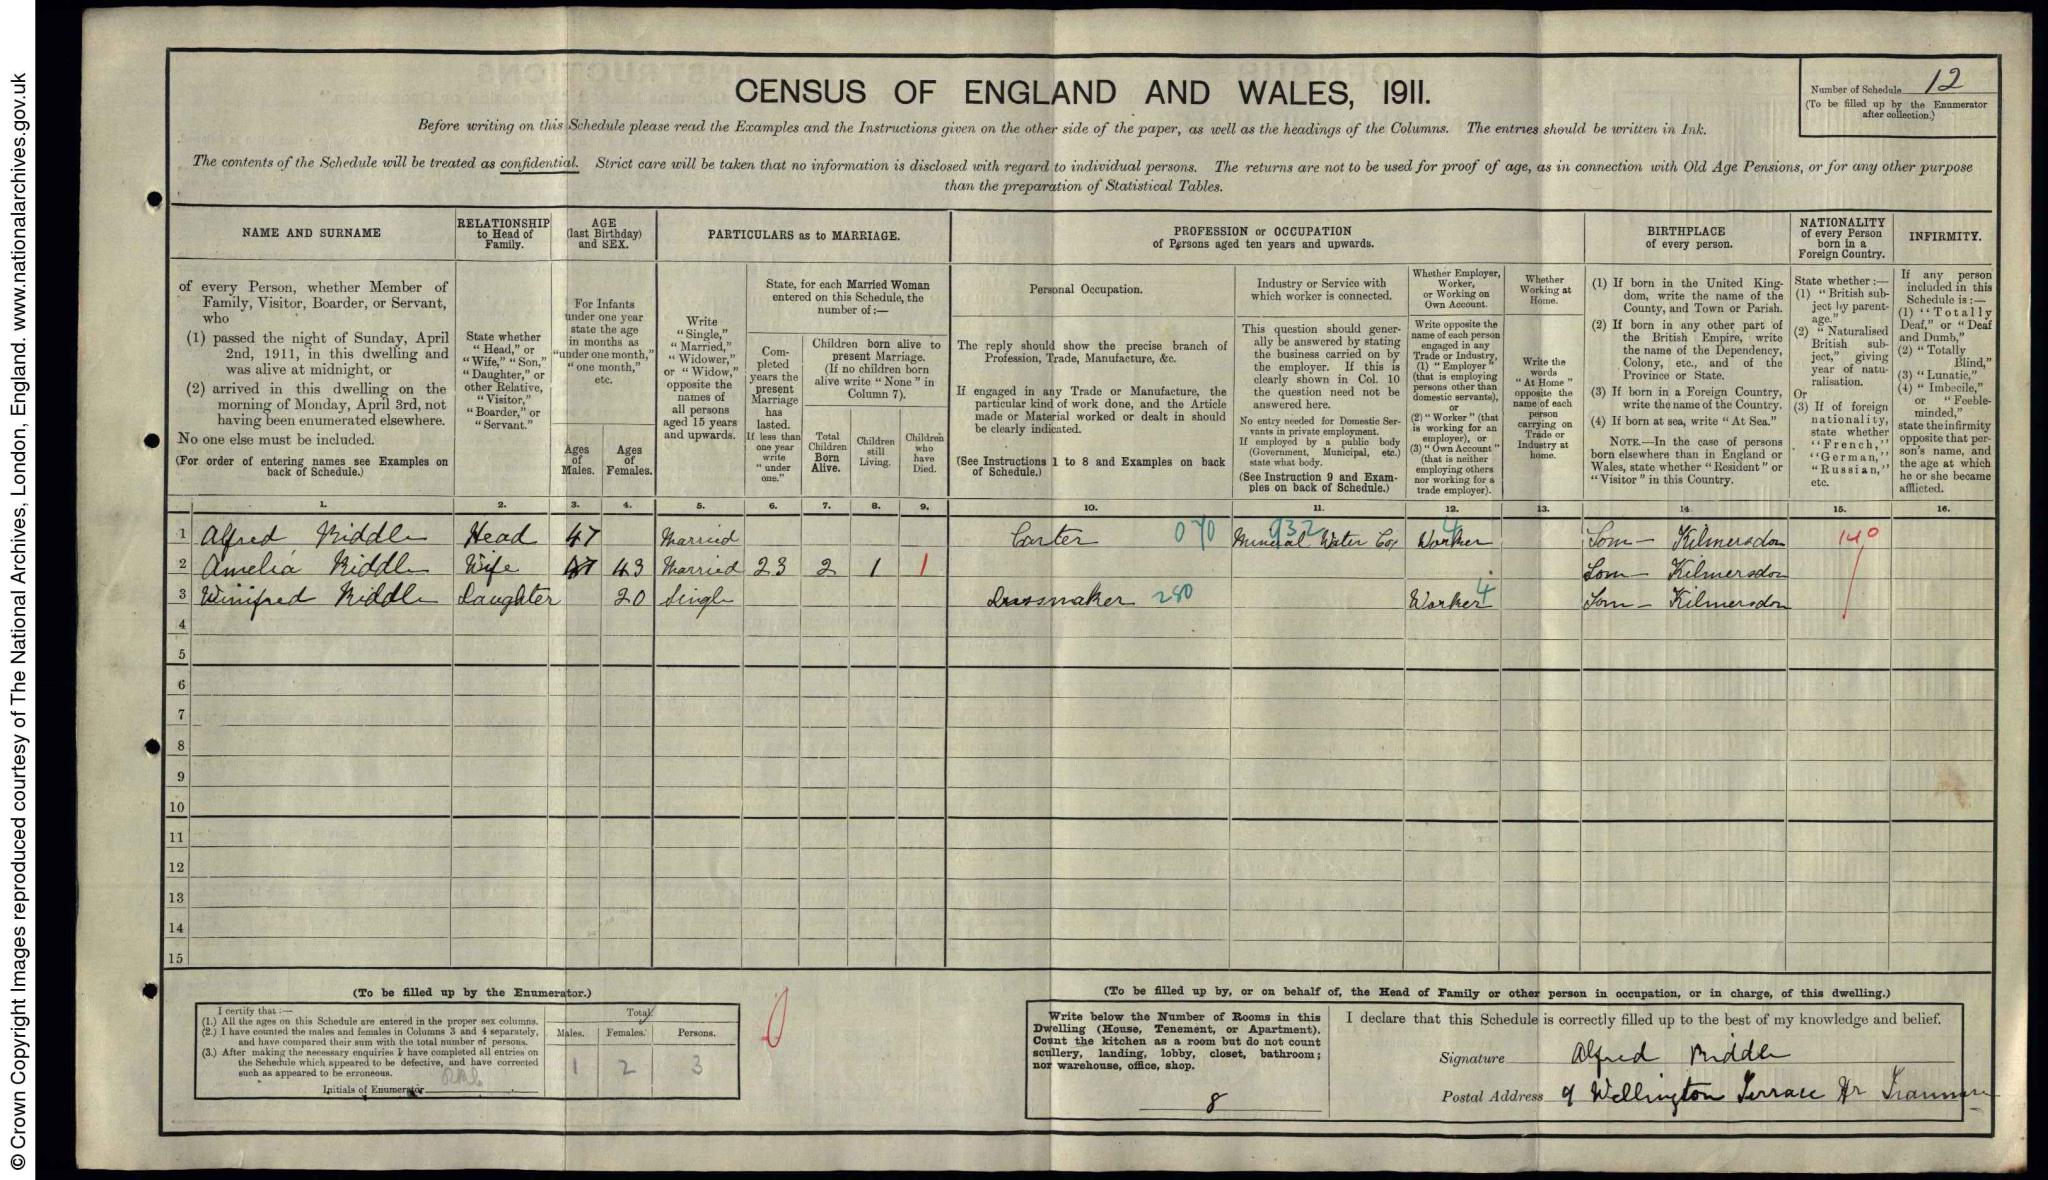 CENSUS OF ENGLAND AND WALES, 1911.
Number of Schedule 12
(To be filled up by the Enumerator after collection.)
Before writing on this Schedule please read the Examples and the Instructions given on the other side of the paper, as well as the headings of the Columns. The entries should be written in Ink.
The contents of the Schedule will be treated as confidential. Strict care will be taken that no information is disclosed with regard to individual persons. The returns are not to be used for proof of age, as in connection with Old Age Pensions, or for any other purpose
than the preparation of Statistical Tables.
NAME AND SURNAME
of every Person, whether Member of
Family, Visitor, Boarder, or Servant,
who
(1) passed the night of Sunday, April
2nd, 1911, in this dwelling and
was alive at midnight, or
(2) arrived in this dwelling on the
morning of Monday, April 3rd, not
having been enumerated elsewhere.
No one else must be included.
(For order of entering names see Examples on
back of Schedule.)
RELATIONSHIP
to Head of
Family.
State whether
"Head," or
"Wife," "Son,"
"Daughter," or
other Relative,
"Visitor,"
"Boarder," or
"Servant."
AGE
(last Birthday)
and SEX.
For Infants
under one year
state the age
in months as
"under one month,"
"one month,"
etc.
Ages
of
Males.
Ages
of
Females.
PARTICULARS as to MARRIAGE.
Write
"Single,"
"Married,"
"Widower,"
or "Widow,"
opposite the
names of
all persons
aged 15 years
and upwards.
State, for each Married Woman
entered on this Schedule, the
number of:—
Com-
pleted
years the
present
Marriage
has
lasted.
If less than
one year
write
"under
one."
Children born alive to
present Marriage.
(If no children born
alive write "None" in
Column 7).
Total
Children
Born
Alive.
Children
still
Living.
Children
who
have
Died.
PROFESSION or OCCUPATION
of Persons aged ten years and upwards.
Personal Occupation.
The reply should show the precise branch of
Profession, Trade, Manufacture, &c.
If engaged in any Trade or Manufacture, the
particular kind of work done, and the Article
made or Material worked or dealt in should
be clearly indicated.
(See Instructions 1 to 8 and Examples on back
of Schedule.)
Industry or Service with
which worker is connected.
This question should gener-
ally be answered by stating
the business carried on by
the employer. If this is
clearly shown in Col. 10
the question need not be
answered here.
No entry needed for Domestic Ser-
vants in private employment.
If employed by a public body
(Government, Municipal, etc.)
state what body.
(See Instruction 9 and Exam-
ples on back of Schedule.)
Whether Employer,
Worker,
or Working on
Own Account.
Write opposite the
name of each person
engaged in any
Trade or Industry,
(1) "Employer"
(that is employing
persons other than
domestic servants),
or
(2) "Worker" (that
is working for an
employer), or
(3) "Own Account"
(that is neither
employing others
nor working for a
trade employer).
Whether
Working at
Home.
Write the
words
"At Home"
opposite the
name of each
person
carrying on
Trade or
Industry at
home.
BIRTHPLACE
of every person.
(1) If born in the United King-
dom, write the name of the
County, and Town or Parish.
(2) If born in any other part of
the British Empire, write
the name of the Dependency,
Colony, etc., and of the
Province or State.
(3) If born in a Foreign Country,
write the name of the Country.
(4) If born at sea, write "At Sea."
NOTE.—In the case of persons
born elsewhere than in England or
Wales, state whether "Resident" or
"Visitor" in this Country.
NATIONALITY
of every Person
born in a
Foreign Country.
State whether:—
(1) "British sub-
ject by parent-
age."
(2) "Naturalised
British sub-
ject," giving
year of natu-
ralisation.
Or
(3) If of foreign
nationality,
state whether
"French,"
"German,"
"Russian,"
etc.
INFIRMITY.
If any person
included in this
Schedule is:—
(1) "Totally
Deaf," or "Deaf
and Dumb,"
(2) "Totally
Blind,"
(3) "Lunatic,"
(4) "Imbecile,"
or "Feeble-
minded,"
state the infirmity
opposite that per-
son's name, and
the age at which
he or she became
afflicted.
1. 2. 3. 4. 5. 6. 7. 8. 9. 10. 11. 12. 13. 14. 15. 16.
1 Alfred Riddle Head 47 Married Carter 070 Mineral Water Co 932 Worker 4 Som— Kilmersdon 140
2 Amelia Riddle Wife 43 Married 23 2 1 1 Som— Kilmersdon
3 Winifred Riddle Daughter 20 Single Dressmaker 280 Worker 4 Som— Kilmersdon
4
5
6
7
8
9
10
11
12
13
14
15
(To be filled up by the Enumerator.)
I certify that:—
(1.) All the ages on this Schedule are entered in the proper sex columns.
(2.) I have counted the males and females in Columns 3 and 4 separately,
and have compared their sum with the total number of persons.
(3.) After making the necessary enquiries I have completed all entries on
the Schedule which appeared to be defective, and have corrected
such as appeared to be erroneous.
Initials of Enumerator
Total.
Males. Females. Persons.
1 2 3
(To be filled up by, or on behalf of, the Head of Family or other person in occupation, or in charge, of this dwelling.)
Write below the Number of Rooms in this
Dwelling (House, Tenement, or Apartment).
Count the kitchen as a room but do not count
scullery, landing, lobby, closet, bathroom;
nor warehouse, office, shop.
8
I declare that this Schedule is correctly filled up to the best of my knowledge and belief.
Signature Alfred Riddle
Postal Address 9 Wellington Terrace Hr Tranmere
© Crown Copyright Images reproduced courtesy of The National Archives, London, England. www.nationalarchives.gov.uk